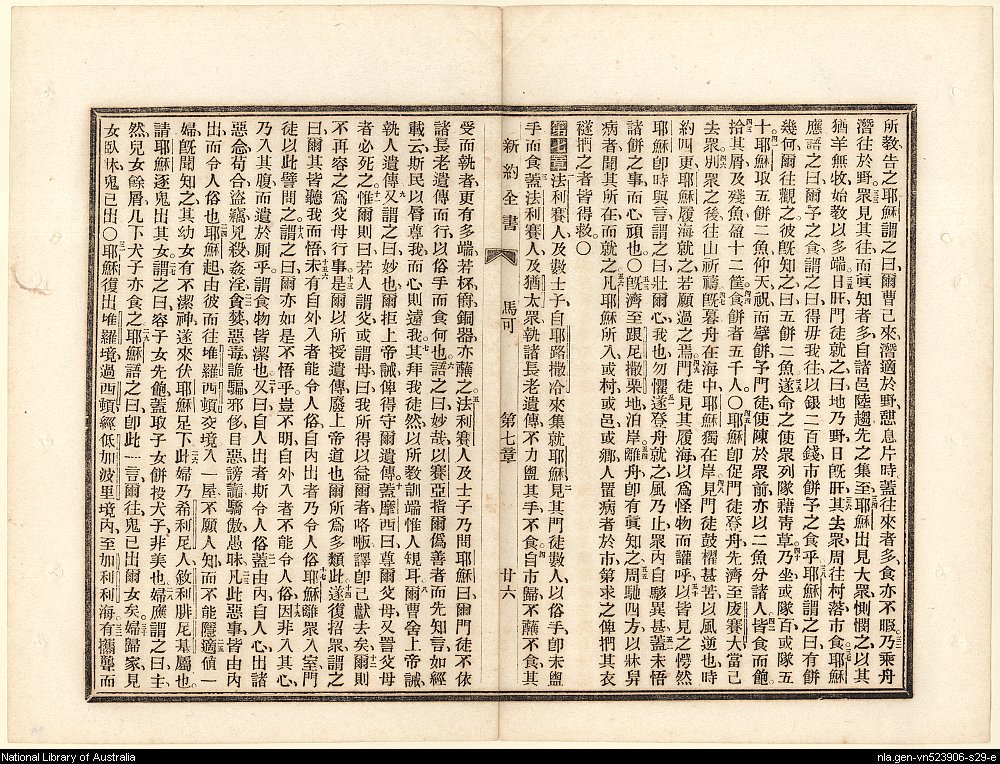 所教告之耶穌謂之曰爾曹己來潛適於野憇息片時蓋往來者多食亦不暇乃乘舟
潛往於野眾見其往而眞知者多自諸邑陸趨先之集至耶穌出見大眾惻憫之以其
猶羊無牧始敎以多端日旰門徒就之曰地乃野日旣旰其去眾周往村落市食耶穌
應語之曰爾予之食謂之曰得毋我往以銀二百錢市餅予之食乎耶穌謂之曰有餅
幾何爾往觀之彼旣知之曰五餅二魚遂命之使眾列隊藉靑草乃坐或隊百或隊五
十耶穌取五餅二魚仰天祝而擘餅予門徒使陳於眾前亦以二魚分諸人皆食而飽
拾其屑及殘魚盈十二筐食餅者五千人○耶穌卽促門徒登舟先濟至賽大當己
去眾別眾之後往山祈禱旣暮舟在海中耶穌獨在岸見門徒鼓櫂甚苦以風逆也時
約四更耶穌履海就之若願過之焉門徒見其履海以爲怪物而讙呼以皆見之愕然
耶穌卽時與言謂之曰壯爾心我也勿懼遂登舟就之風乃止眾內自駭異甚蓋未悟
諸餅之事而心頑也○旣濟至尼撒栗地泊岸離舟卽有眞知之周馳四方以牀舁
病者聞其所在而就之凡耶穌所入或村或邑或鄕人置病者於市第求之俾捫其衣
襚捫之者皆得救○
第七章法利賽人及數士子自耶路撒冷來集就耶穌見其門徒數人以俗手卽未盥
手而食蓋法利賽人及猶太眾執諸長老遺傳不力盥其手不食自市歸不蘸不食其
新約全書 馬可 第七章 廿六
受而執者更有多端若杯銅器亦蘸之法利賽人及士子乃問耶穌曰爾門徒不依
諸長老遺傳而行以俗手而食何也語之曰妙哉以賽亞指爾僞善者而先知言如經
載云斯民以脣尊我而心則遠我其拜我徒然以所敎訓端惟人規耳爾曹舍上帝誡
執人遺傳又謂之曰妙也爾拒上帝誡俾得守爾遺傳蓋摩西曰尊爾父母又詈父母
者必死之惟爾則曰若人謂父或謂母曰我所得以益爾者咯嘣譯卽己獻去矣爾則
不再容之爲父母行事是爾以所授遺傳廢上帝道也爾所爲多類此遂復招眾謂之
曰爾其皆聽我而悟未有自外入者能令人俗自內出者乃令人俗耶穌離眾入室門
徒以此譬問之謂之曰爾亦如是不悟乎豈不明自外入者不能令人俗因非入其心
乃入其腹而遺於厠乎謂食物皆潔也又曰自人出者斯令人俗蓋由內自人心出諸
惡念苟合盜竊兇殺姦淫貪婪惡毒詭騙邪侈目惡謗讟驕傲愚昧凡此惡事皆由內
出而令人俗也耶穌起由彼而往堆羅西頓交境入一屋不願人知而不能隱適値一
婦旣聞知之其幼女有不潔神遂來伏耶穌足下此婦乃希利尼人敘利腓尼基屬也
請耶穌逐鬼出其女謂之曰容子女先飽蓋取子女餅投犬子非美也婦應謂之曰主
然兒女餘屑几下犬子亦食之耶穌語之曰卽此一言爾往鬼已出爾女矣婦歸家見
女臥牀鬼已出○耶穌復出堆羅境過西頓經低加波里境內至加利利海有攜聾而
National Library of Australia
nla.gen-vn523906-s29-e